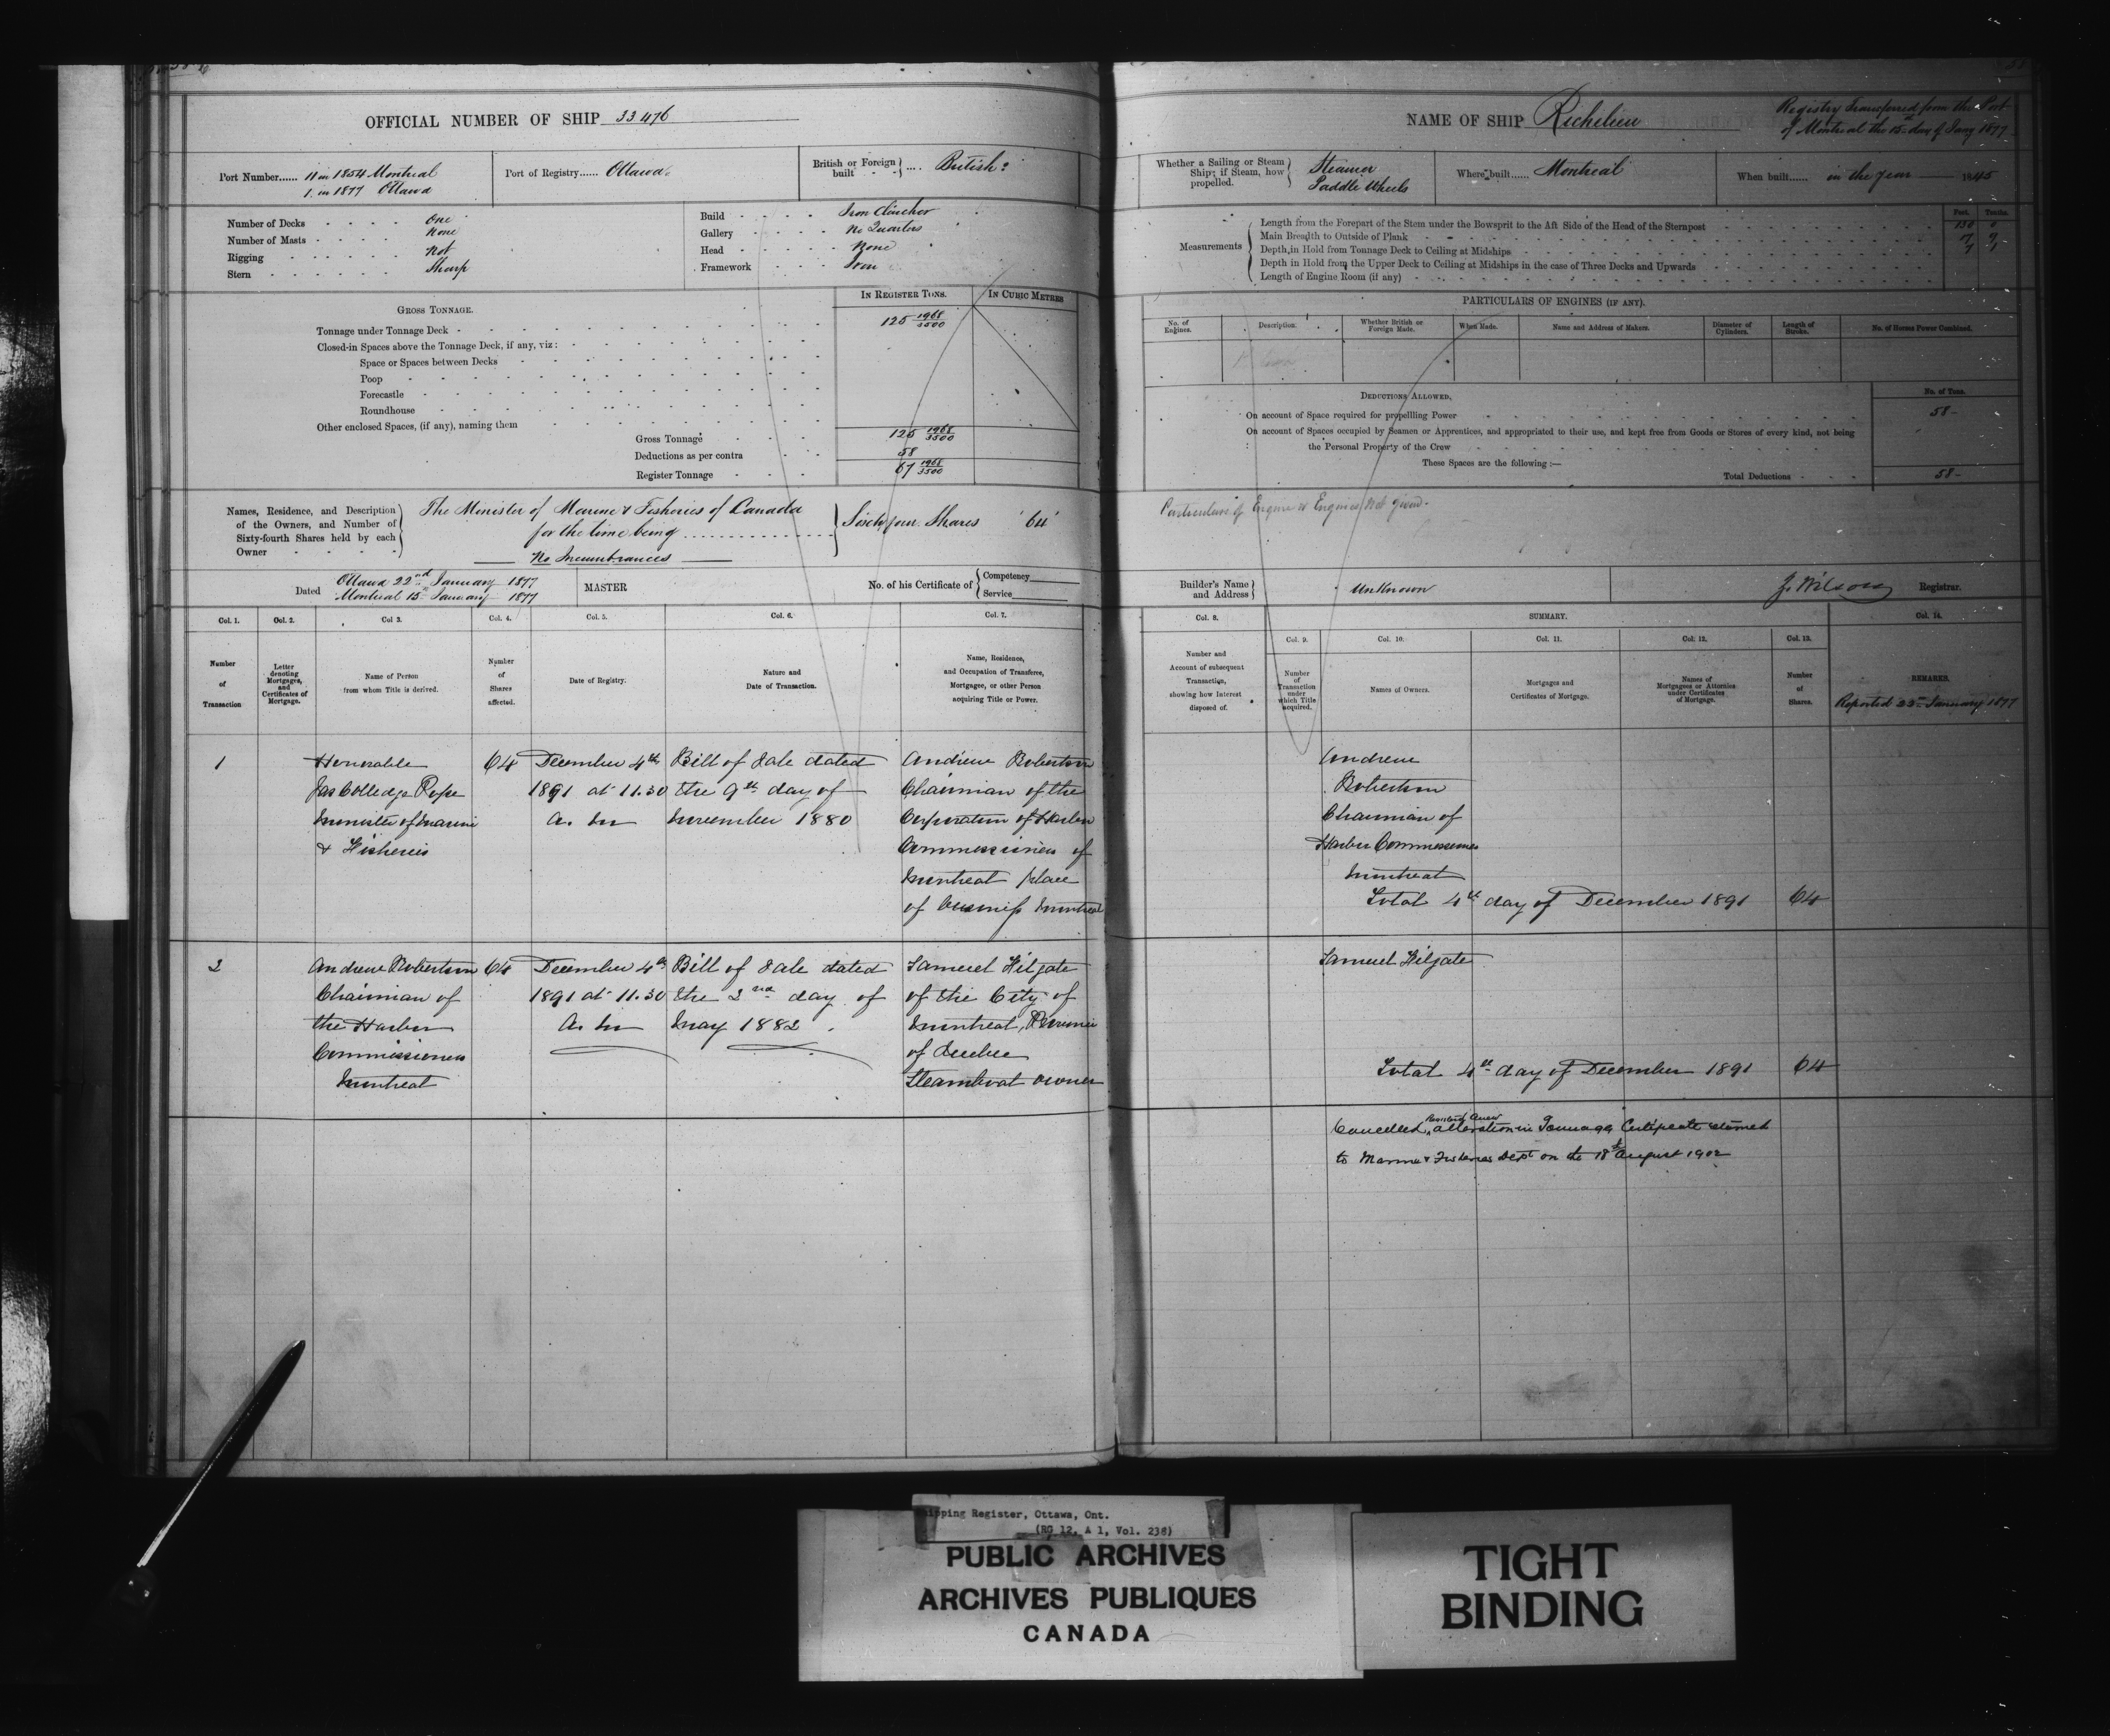 OFFICIAL NUMBER OF SHIP 33476
Port Number...... 11 in 1854 Montreal
1. in 1877 Ottawa
Port of Registry...... Ottawa
British or Foreign built .... British
Number of Decks One
Number of Masts None
Rigging Not
Stern Sharp
Build Iron Clincher
Gallery No Quarters
Head None
Framework Iron
IN REGISTER TONS. IN CUBIC METRES
GROSS TONNAGE.
Tonnage under Tonnage Deck 125 1968/3500
Closed-in Spaces above the Tonnage Deck, if any, viz:
Space or Spaces between Decks
Poop
Forecastle
Roundhouse
Other enclosed Spaces, (if any), naming them
Gross Tonnage 125 1968/3500
Deductions as per contra 58
Register Tonnage 67 1968/3500
Names, Residence, and Description of the Owners, and Number of Sixty-fourth Shares held by each Owner
The Minister of Marine & Fisheries of Canada
for the time being
Sixty four Shares 64
No Incumbrances
Dated Ottawa 22nd January 1877
Montreal 15 January 1877
MASTER
No. of his Certificate of Competency
Service
Col. 1. Col. 2. Col 3. Col. 4. Col. 5. Col. 6. Col. 7.
Number of Transaction
Letter denoting Mortgages, and Certificates of Mortgage.
Name of Person from whom Title is derived.
Number of Shares affected.
Date of Registry.
Nature and Date of Transaction.
Name, Residence, and Occupation of Transferee, Mortgagee, or other Person acquiring Title or Power.
1
Honorable
Jas Colledge Pope
Minister of Marine
& Fisheries
64
December 4th
1891 at 11.30
a. m
Bill of Sale dated
the 9th day of
November 1880
Andrew Robertson
Chairman of the
Corporation of Harbor
Commissioners of
Montreal place
of business Montreal
2
Andrew Robertson
Chairman of
the Harbor
Commissioners
Montreal
64
December 4th
1891 at 11.30
a. m
Bill of Sale dated
the 2nd day of
May 1882
Samuel Filgate
of the City of
Montreal, Province
of Quebec
Steamboat owner
NAME OF SHIP Richelieu
Registry Transferred from the Port
of Montreal the 15th day of Jany 1877
Whether a Sailing or Steam Ship; if Steam, how propelled.
Steamer
Paddle Wheels
Where built...... Montreal
When built...... in the year 1845
Measurements
Feet. Tenths.
Length from the Forepart of the Stem under the Bowsprit to the Aft Side of the Head of the Sternpost
Main Breadth to Outside of Plank
Depth in Hold from Tonnage Deck to Ceiling at Midships
Depth in Hold from the Upper Deck to Ceiling at Midships in the case of Three Decks and Upwards
Length of Engine Room (if any)
PARTICULARS OF ENGINES (IF ANY).
No. of Engines.
Description.
Whether British or Foreign Made.
When Made.
Name and Address of Makers.
Diameter of Cylinders.
Length of Stroke.
No. of Horses Power Combined.
DEDUCTIONS ALLOWED.
No. of Tons.
On account of Space required for propelling Power 58-
On account of Spaces occupied by Seamen or Apprentices, and appropriated to their use, and kept free from Goods or Stores of every kind, not being
the Personal Property of the Crew
These Spaces are the following :—
Total Deductions 58-
Particulars of Engine or Engines Not given.
Builder's Name and Address Unknown
Wilson Registrar.
Col. 8. SUMMARY. Col. 14.
Col. 9. Col. 10. Col. 11. Col. 12. Col. 13.
Number and Account of subsequent Transaction, showing how Interest disposed of.
Number of Transaction under which Title acquired.
Names of Owners.
Mortgages and Certificates of Mortgage.
Names of Mortgagees or Attornies under Certificates of Mortgage.
Number of Shares.
REMARKS.
Reported 22nd January 1877
Andrew
Robertson
Chairman of
Harbor Commissioners
Montreal
Total 4th day of December 1891 64
Samuel Filgate
Total 4th day of December 1891 64
Cancelled, Anew alteration in Tonnage Certificate
to Marine & Fisheries Dept on the 18th August 1902
Shipping Register, Ottawa, Ont.
(RG 12, A 1, Vol. 238)
PUBLIC ARCHIVES
ARCHIVES PUBLIQUES
CANADA
TIGHT
BINDING